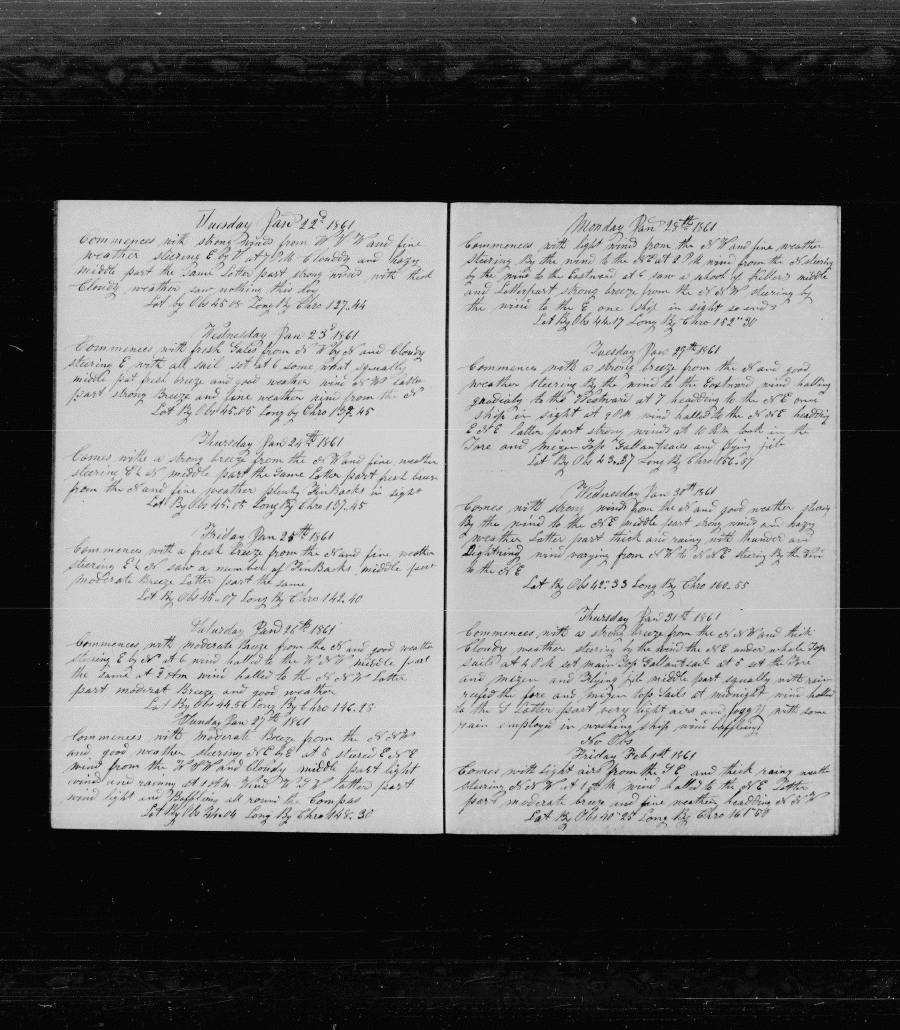 Tuesday Jan 22d 1861
Commences with strong winds from W N W and fine
weather steering E by S at 7 P M Cloudy and hazy
middle part the Same Latter part strong wind with thick
Cloudy weather saw nothing this day
Lat by Obs 45.05 Long By Chro 127.44
Wednesday Jan 23d 1861
Commences with fresh Gales from N W by N and Cloudy
steering E with all sail set at 6 some what squally
middle part fresh breeze and good weather wind N W Latter
part strong Breeze and fine weather wind from the N
Lat By Obs 45.05 Long by Chro 132.45
Thursday Jan 24th 1861
Comes with a strong breeze from the N W and fine weather
steering E b N middle part the Same Latter part fresh breeze
from the N and fine weather plenty FinBacks in sight
Lat By Obs 45.05 Long By Chro 137.45
Friday Jan 25th 1861
Commences with a fresh Breeze from the N and fine weather
steering E b N saw a number of FinBacks middle part
moderate Breeze Latter part the same
Lat By Obs 45.07 Long By Chro 142.40
Saturday Jan 26th 1861
Commences with moderate Breeze from the N and good weather
steering E by N at 6 wind halled to the W N W middle part
the same at 2 Am wind halled to the N N W Latter
part moderat Breeze and good weather
Lat By Obs 44.56 Long By Chro 146.25
Sunday Jan 27th 1861
Commences with moderate Breez from the N N W
and good weather steering N E by E at 5 steered E N E
wind from the W S W and Cloudy middle part light
wind and rainny at 1 AM wind W S W latter part
wind light and Baffling all round the Compass
Lat By Obs 44.04 Long By Chro 148.30
Monday Jan 28th 1861
Commences with light wind from the N W and fine weather
steering By the wind to the N E at 2 P M wind from the N steering
by the wind to the Eastward at 6 saw a school of killers middle
and Latterpart strong breeze from the N N W steering by
the wind to the E one ship in sight so ends
Lat By Obs 44.17 Long By Chro 152.30
Tuesday Jan 29th 1861
Commences with a strong breeze from the N and good
weather steering By the wind to the Eastward wind halling
gradialy to the Westward at 7 heading to the N E one
ship in sight at 9 P M wind halled to the N N E heading
E N E latter part strong winds at 10 A M took in the
Fore and mizen Top Gallantsails and flying jib
Lat By Obs 43.37 Long By Chro 156.37
Wednesday Jan 30th 1861
Comes with strong wind from the N and good weather steering
By the wind to the N E middle part strong winds and hazy
weather Latter part thick and rainy with thunder and
Lightning wind varying from N W to N N E steering By the Wind
to the N E
Lat By Obs 42.33 Long By Chro 160.55
Thursday Jan 31st 1861
Commences with a strong breeze from the N N W and thick
Cloudy weather steering by the wind the N E under whole Top
sails at 4 P M set main Top Gallantsail at 5 set the Fore
and mizen and Flying jib middle part squally with rain
reefed the fore and mizen top sails at midnight wind halled
to the S Latter part very light airs and foggy with some
rain employed in washing ship wind baffling
No Obs
Friday Feb 1st 1861
Comes with light airs from the S E and thick rainy weather
steering N N W at 1 P M wind halled to the N E Latter
part moderate breeze and fine weather heading N N W
Lat By Obs 40.25 Long By Chro 161.50